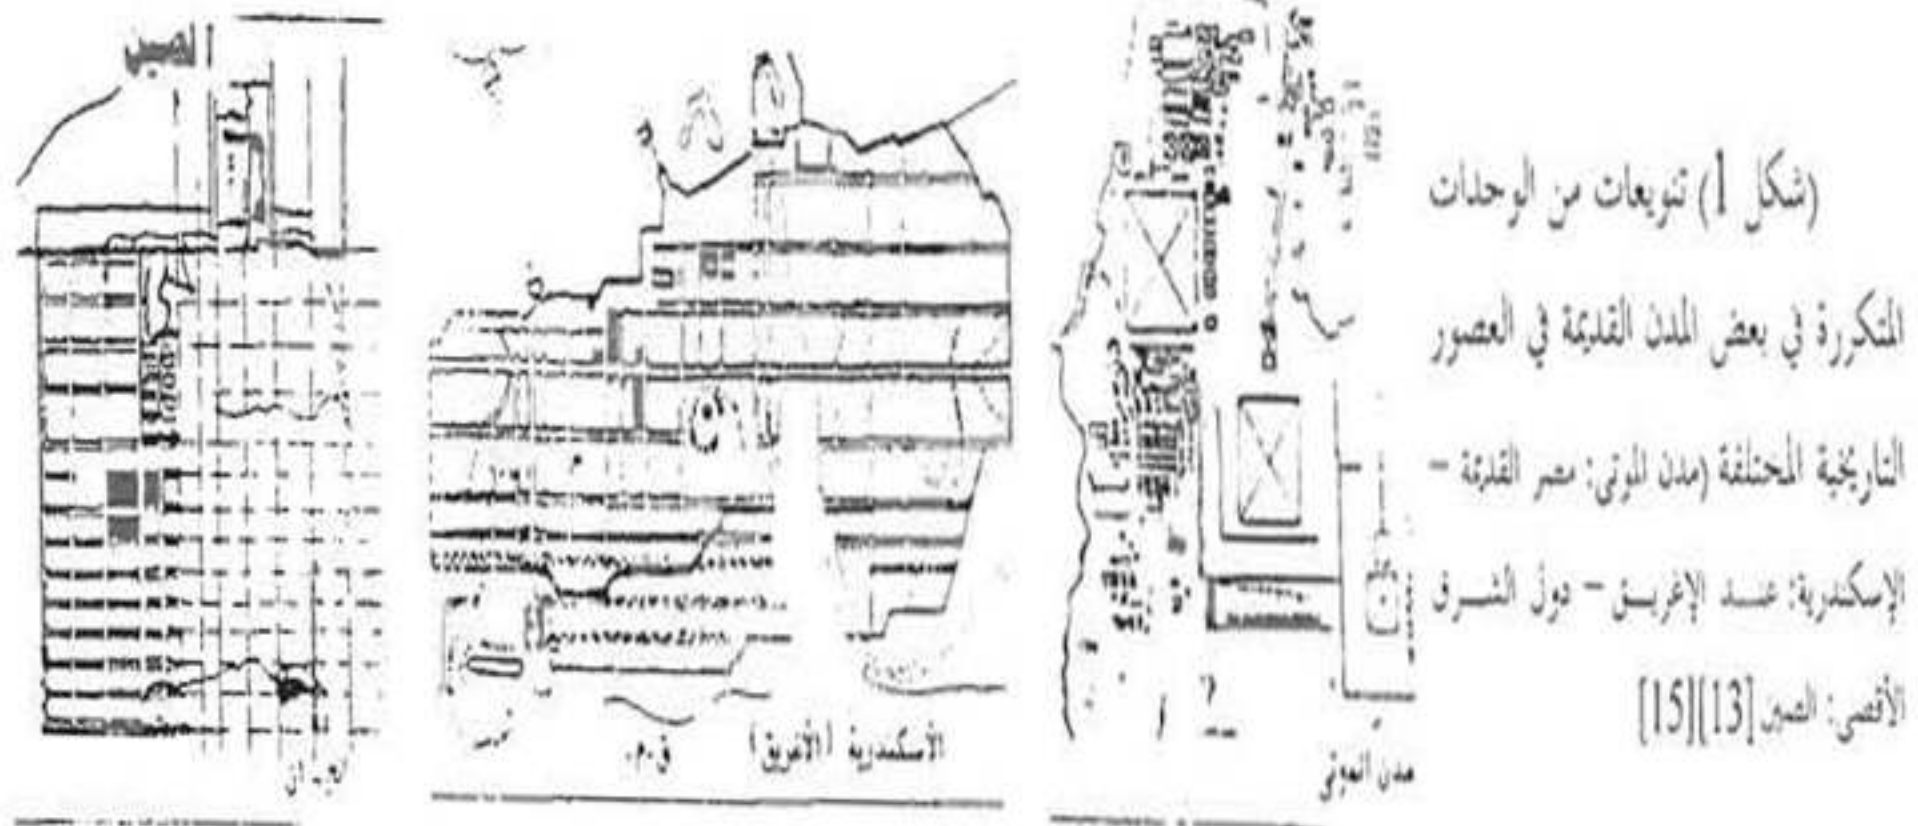 (شكل 1) تنويعات من الوحدات
المتكررة في بعض المدن القديمة في العصور
التاريخية المختلفة (مدن الموتي: مصر القديمة –
الإسكندرية: عنــد الإغريــق – دول الشــرق
الأقصى: الصين [13][15]
الصين
الأسكندرية (الأغريق) ق.م.
مدن الموتي